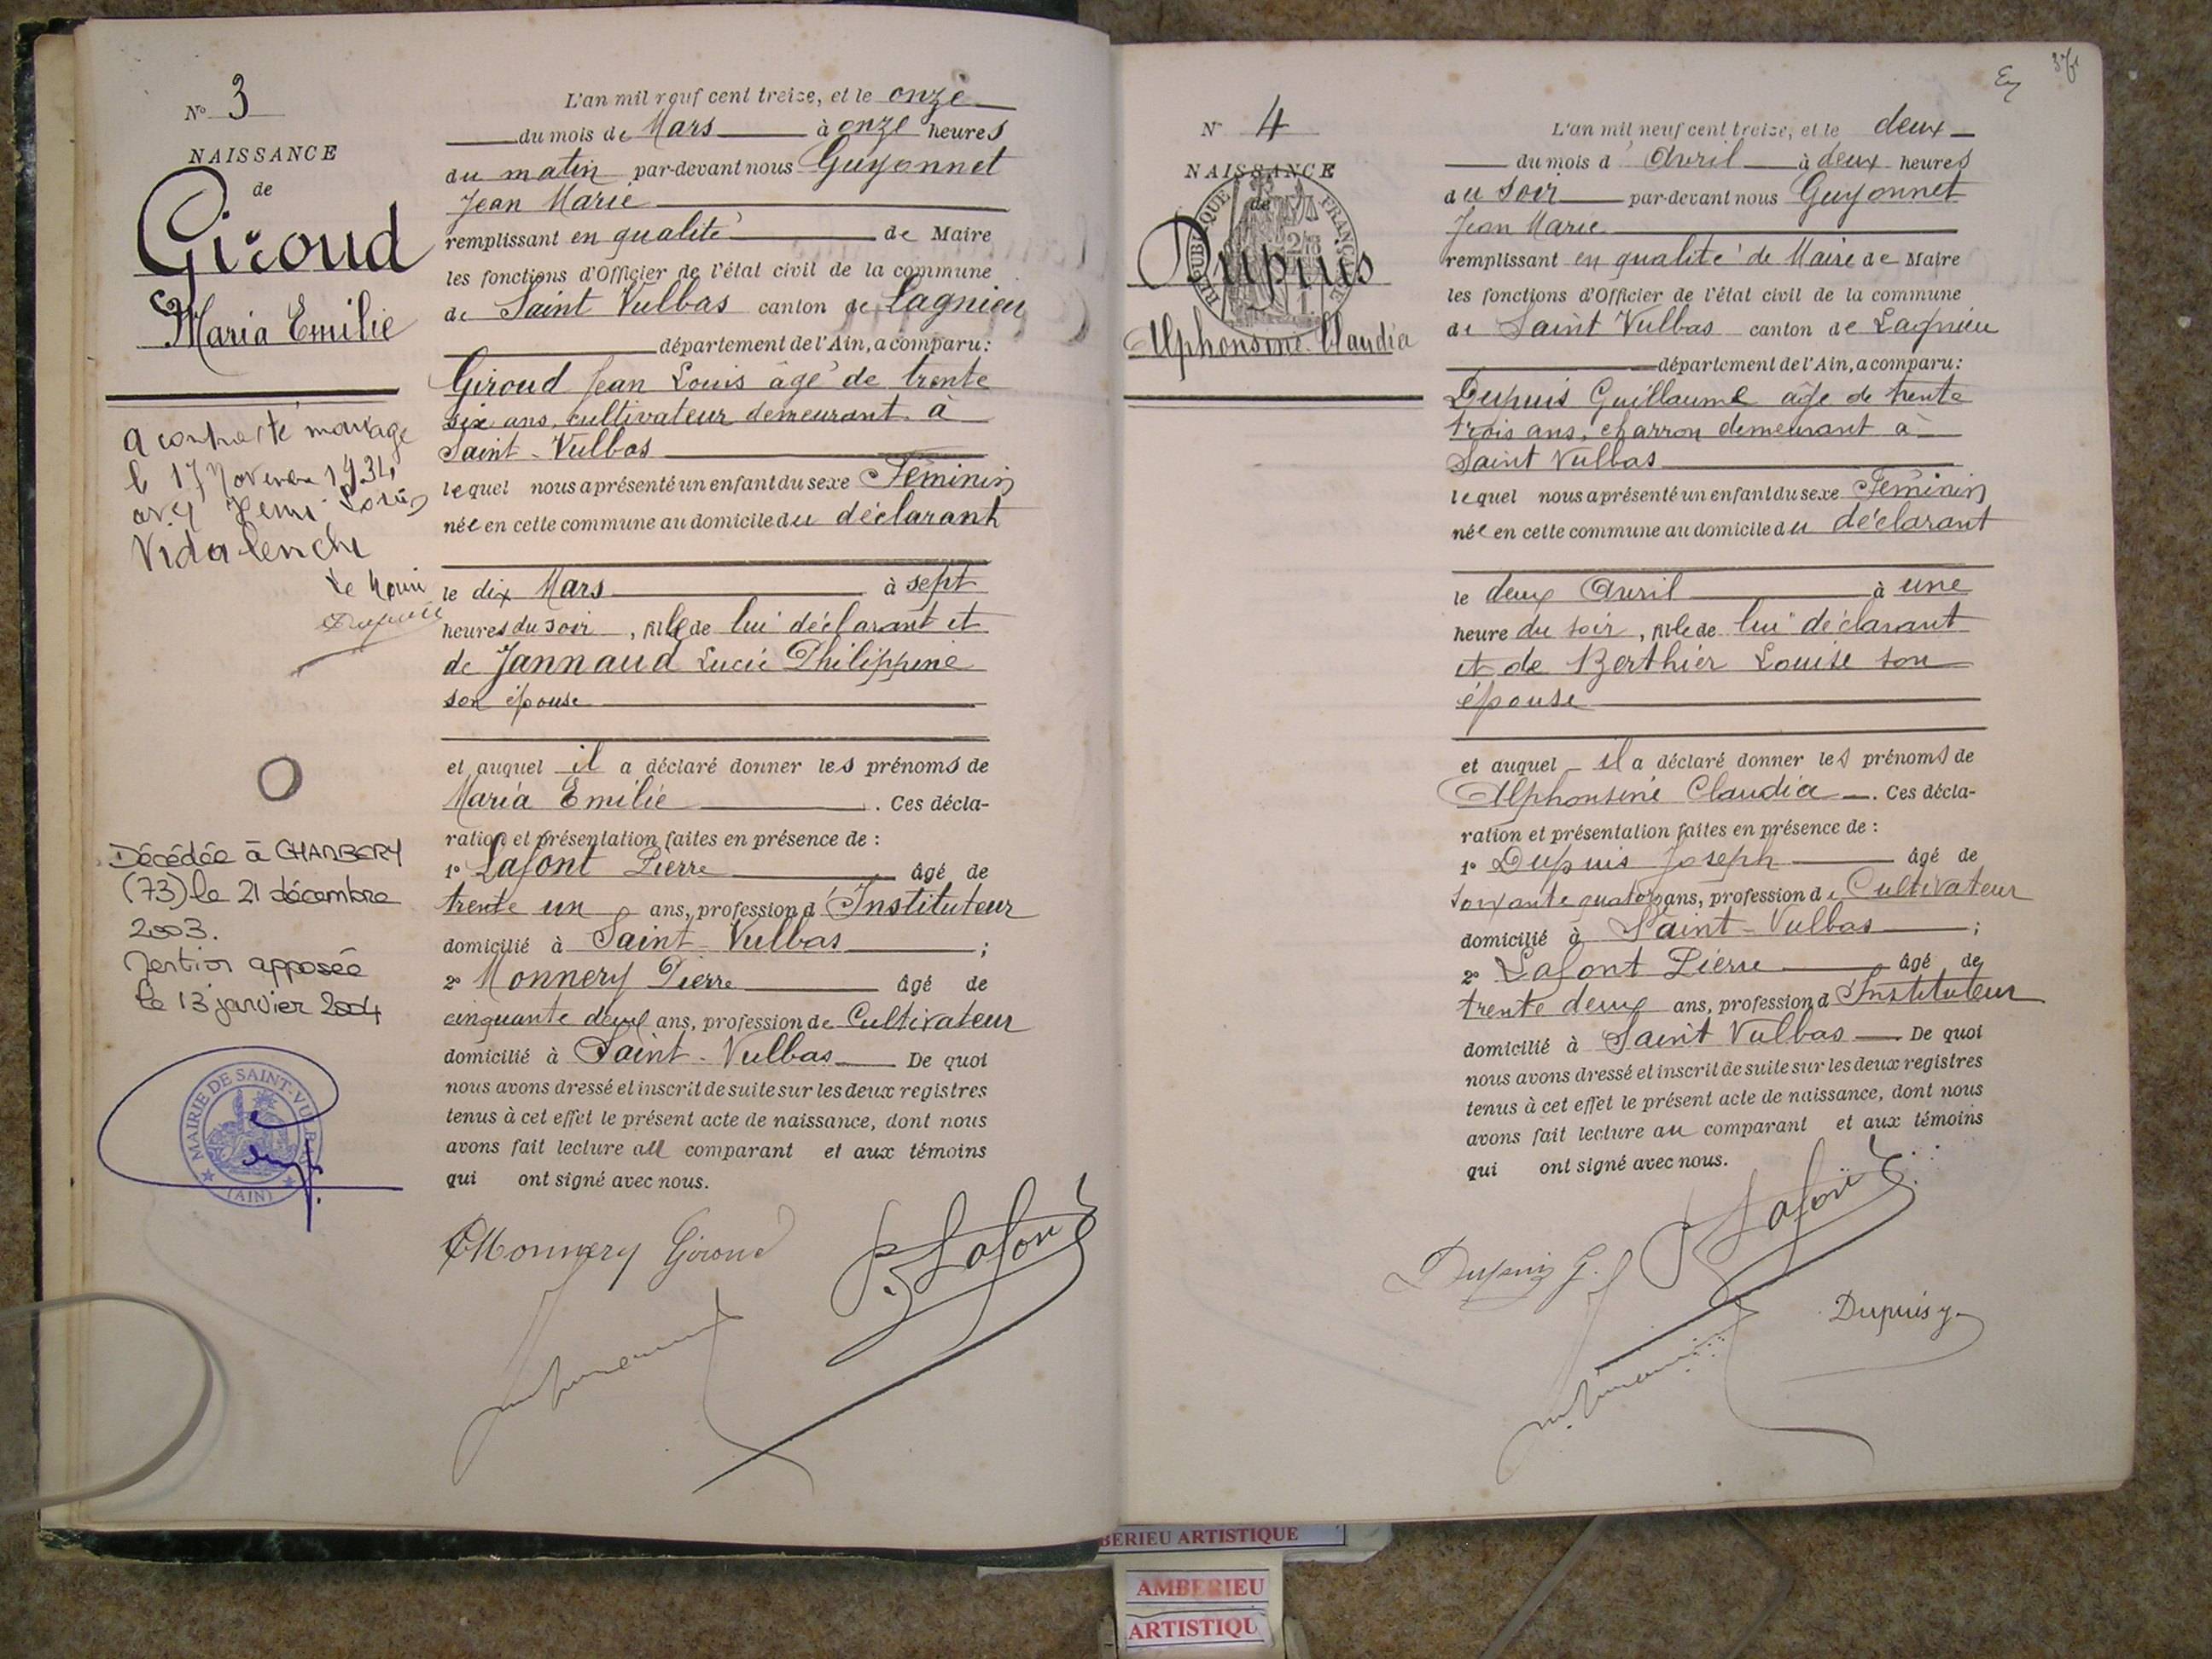 N° 3
NAISSANCE
de
Giroud
Maria Emilie
a contracté mariage
le 17 Novembre 1934
avec
Vidalenche
Le
Décédée à CHAMBERY
(73) le 21 décembre
2003.
Mention apposée
le 13 janvier 2004
MAIRIE DE SAINT-VULBAS
(AIN)
L'an mil neuf cent treize, et le onze
du mois de Mars à onze heures
du matin par-devant nous Guyonnet
Jean Marie
remplissant en qualité de Maire
les fonctions d'Officier de l'état civil de la commune
de Saint Vulbas canton de Lagnieu
département de l'Ain, a comparu:
Giroud Jean Louis âgé de trente
six ans, cultivateur demeurant à
Saint-Vulbas
lequel nous a présenté un enfant du sexe Féminin
née en cette commune au domicile du déclarant
le dix Mars à sept
heures du soir, fille de lui déclarant et
de Jannaud Lucie Philippine
son épouse
et auquel il a déclaré donner les prénoms de
Maria Emilie. Ces décla-
ration et présentation faites en présence de :
1° Lafont Pierre âgé de
trente un ans, profession d'Instituteur
domicilié à Saint-Vulbas ;
2° Monnery Pierre âgé de
cinquante deux ans, profession de Cultivateur
domicilié à Saint-Vulbas De quoi
nous avons dressé et inscrit de suite sur les deux registres
tenus à cet effet le présent acte de naissance, dont nous
avons fait lecture au comparant et aux témoins
qui ont signé avec nous.
Monnery Giroud P. Lafont
N° 4
NAISSANCE
de
Dupuis
Alphonsine Claudia
RÉPUBLIQUE FRANÇAISE
L'an mil neuf cent treize, et le deux
du mois d'Avril à deux heures
du soir par-devant nous Guyonnet
Jean Marie
remplissant en qualité de Maire de Maire
les fonctions d'Officier de l'état civil de la commune
de Saint Vulbas canton de Lagnieu
département de l'Ain, a comparu:
Dupuis Guillaume âgé de trente
trois ans, charron demeurant à
Saint Vulbas
lequel nous a présenté un enfant du sexe Féminin
née en cette commune au domicile du déclarant
le deux Avril à une
heure du soir, fille de lui déclarant
et de Berthier Louise son
épouse
et auquel il a déclaré donner les prénoms de
Alphonsine Claudia. Ces décla-
ration et présentation faites en présence de :
1° Dupuis Joseph âgé de
ans, profession de Cultivateur
domicilié à Saint-Vulbas ;
2° Lafont Pierre âgé de
trente deux ans, profession d'Instituteur
domicilié à Saint Vulbas De quoi
nous avons dressé et inscrit de suite sur les deux registres
tenus à cet effet le présent acte de naissance, dont nous
avons fait lecture au comparant et aux témoins
qui ont signé avec nous.
Dupuis G. P Lafont
Dupuis J.
BERIEU ARTISTIQUE
AMBERIEU
ARTISTIQU